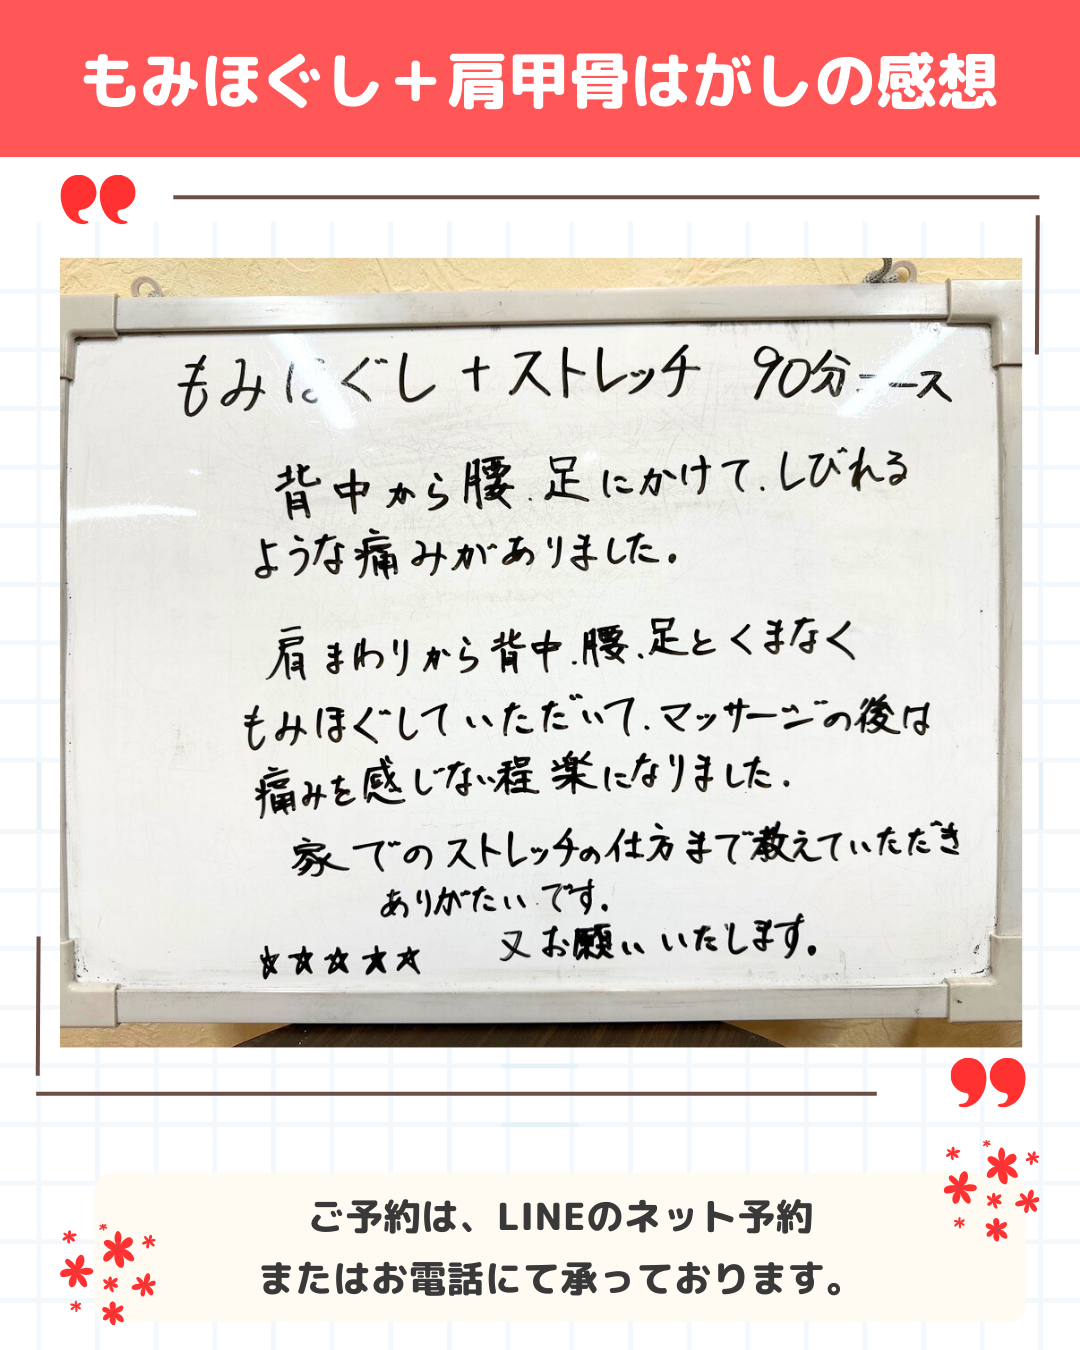 もみほぐし＋肩甲骨はがしの感想
もみほぐし＋ストレッチ 90分コース
背中から腰、足にかけて、しびれる
ような痛みがありました。
肩まわりから背中、腰、足とくまなく
もみほぐしていただいて、マッサージの後は
痛みを感じない程楽になりました。
家でのストレッチの仕方まで教えていただき
ありがたいです。
☆☆☆☆☆ 又お願いいたします。
ご予約は、LINEのネット予約
またはお電話にて承っております。